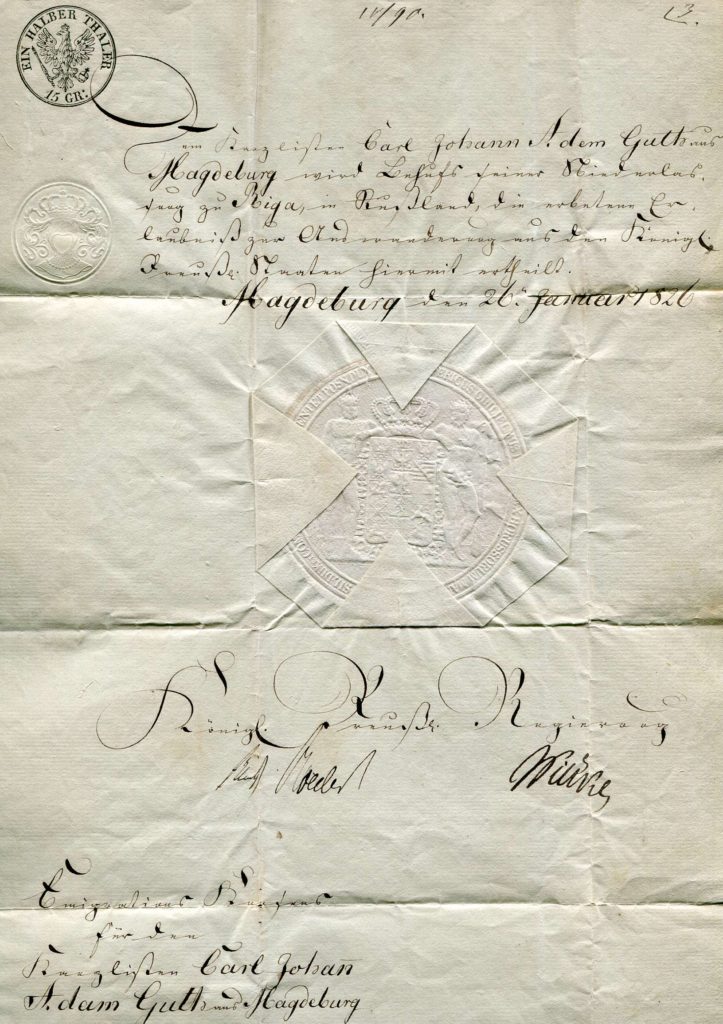 EIN HALBER THALER
15 GR:
11/90.
13.
Dem Kanzlisten Carl Johann Adam Guth aus
Magdeburg wird Behufs seiner Niederlas-
sung zu Riga, in Rußland, die erbetene Er-
laubniß zur Auswanderung aus den Königl.
Preuß. Staaten hiermit ertheilt.
Magdeburg den 26n Januar 1826
Königl. Preuß. Regierung
Emigrations Konsens
für den
Kanzlisten Carl Johan̄
Adam Guth aus Magdeburg